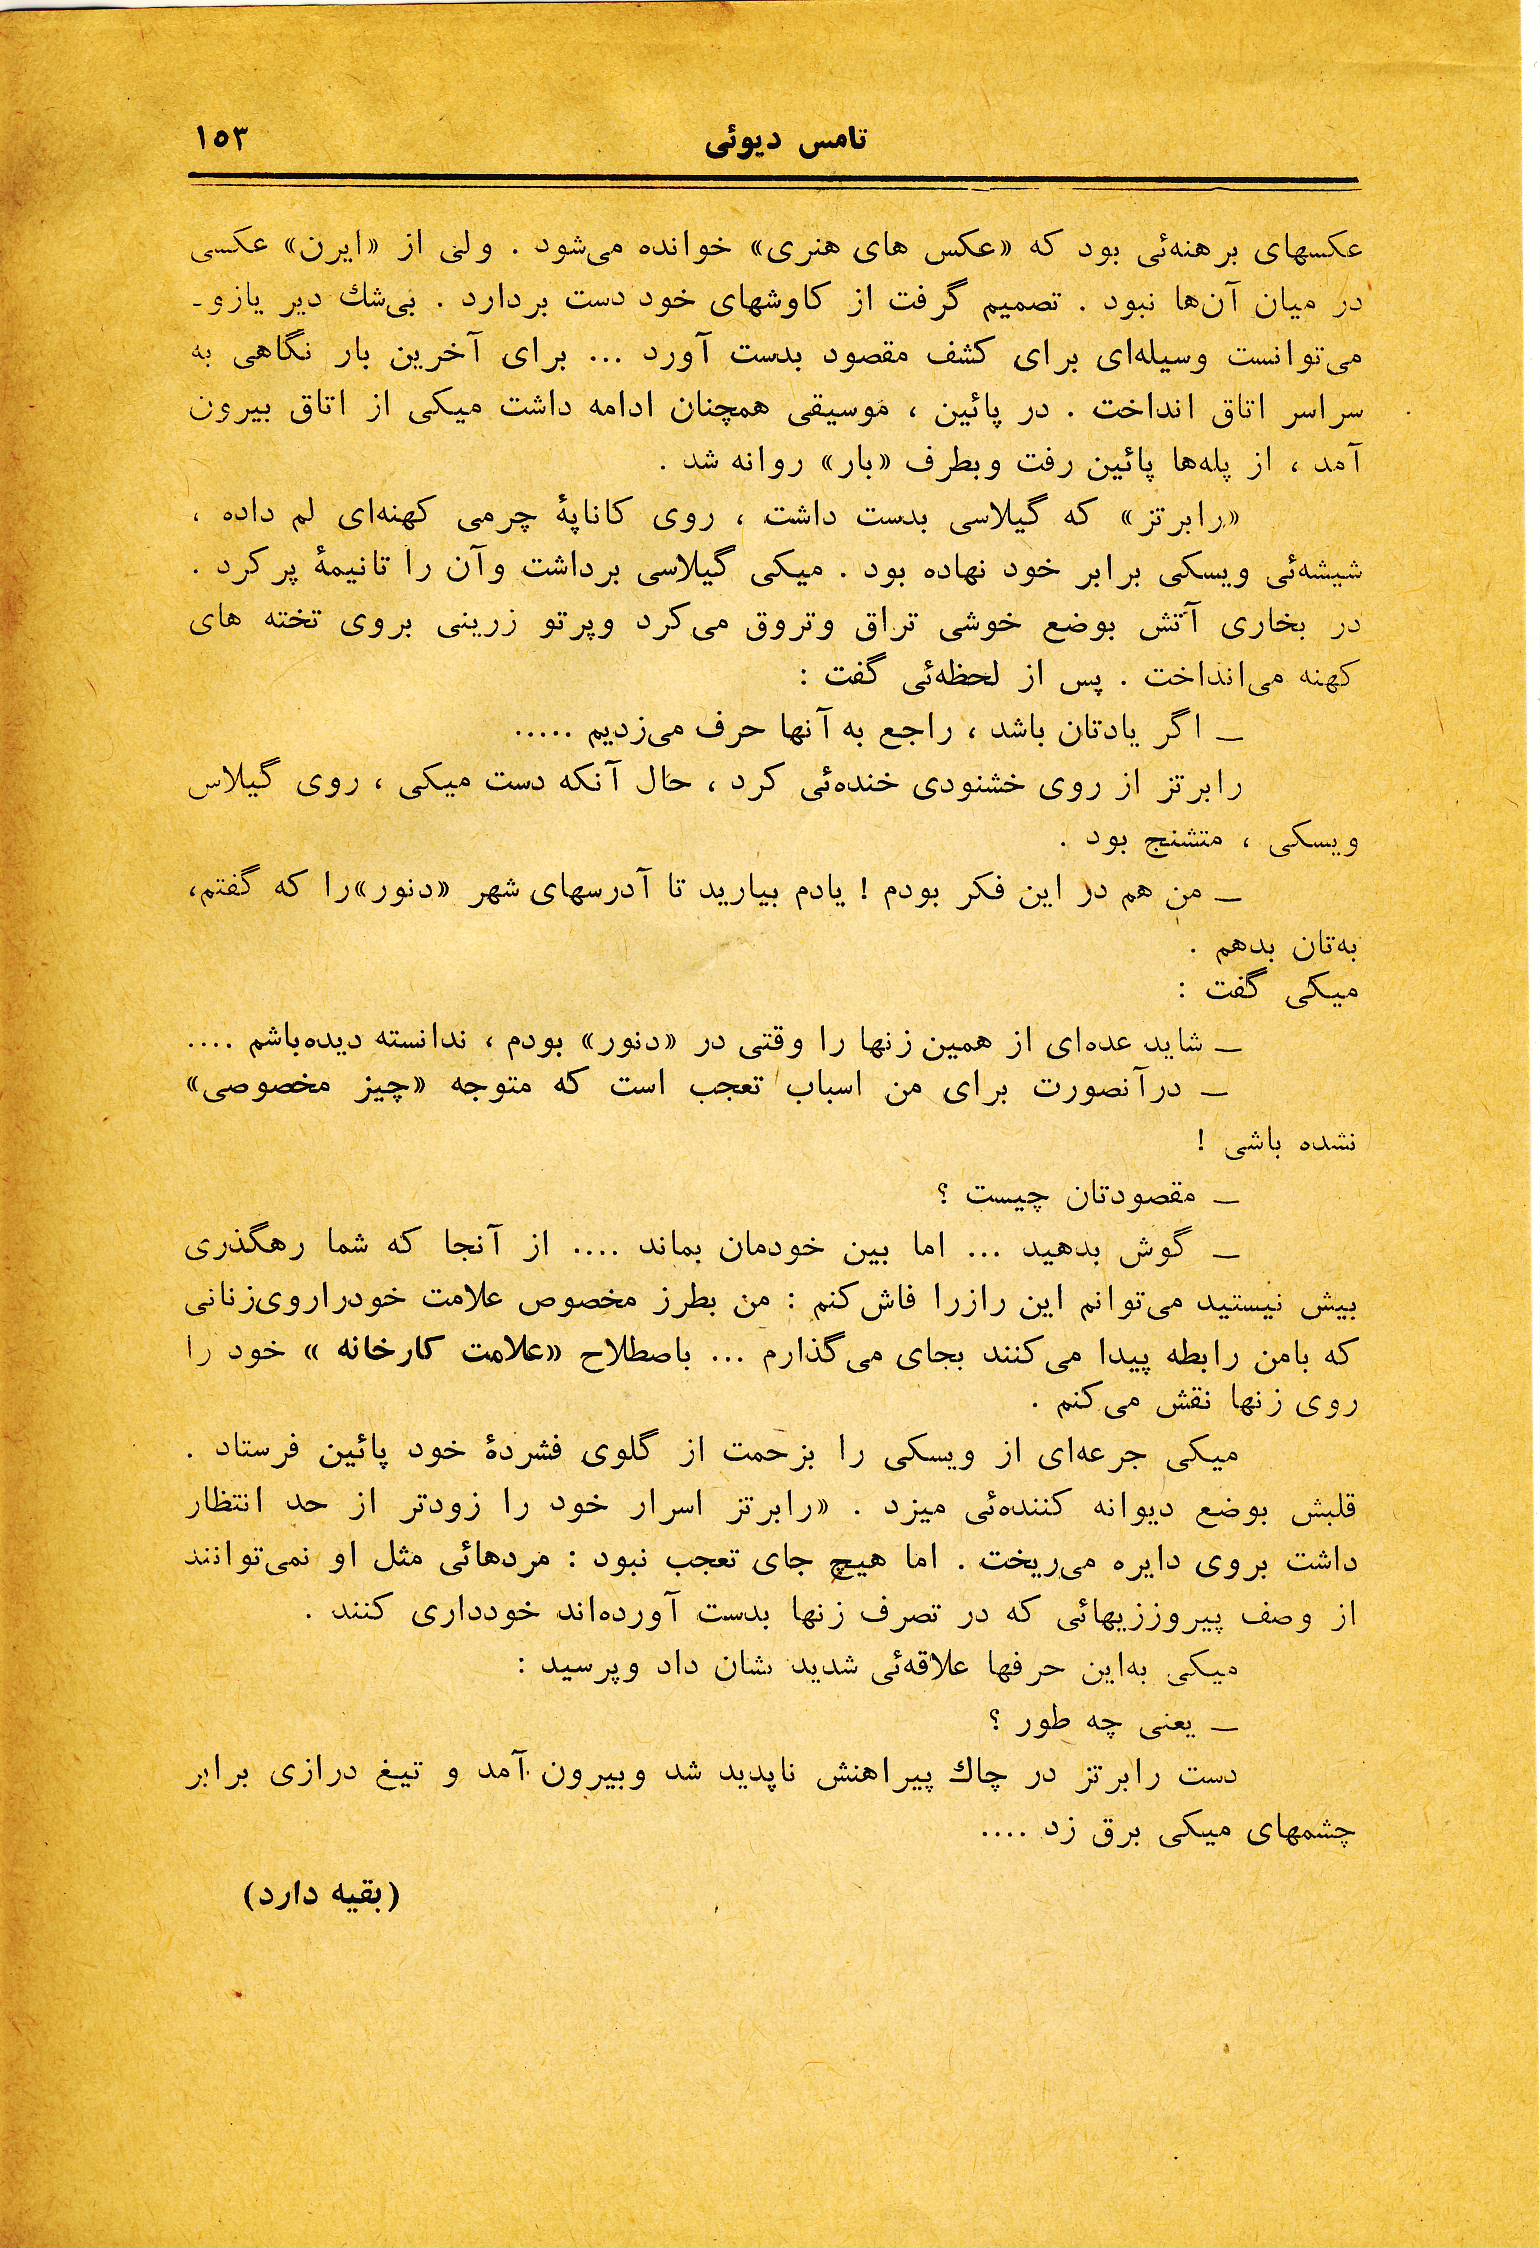 تامس دیوئی ۱۵۳
عکسهای برهنه‌ئی بود که «عکس های هنری» خوانده می‌شود . ولی از «ایرن» عکسی
در میان آن‌ها نبود . تصمیم گرفت از کاوشهای خود دست بردارد . بی‌شك دیر یازو-
می‌توانست وسیله‌ای برای کشف مقصود بدست آورد ... برای آخرین بار نگاهی به
سراسر اتاق انداخت . در پائین ، موسیقی همچنان ادامه داشت میکی از اتاق بیرون
آمد ، از پله‌ها پائین رفت وبطرف «بار» روانه شد .
«رابرتز» که گیلاسی بدست داشت ، روی کاناپهٔ چرمی کهنه‌ای لم داده ،
شیشه‌ئی ویسکی برابر خود نهاده بود . میکی گیلاسی برداشت وآن را تانیمهٔ پرکرد .
در بخاری آتش بوضع خوشی تراق وتروق می‌کرد وپرتو زرینی بروی تخته های
کهنه می‌انداخت . پس از لحظه‌ئی گفت :
ـ اگر یادتان باشد ، راجع به آنها حرف می‌زدیم .....
رابرتز از روی خشنودی خنده‌ئی کرد ، حال آنکه دست میکی ، روی گیلاس
ویسکی ، متشنج بود .
ـ من هم در این فکر بودم ! یادم بیارید تا آدرسهای شهر «دنور»را که گفتم،
به‌تان بدهم .
میکی گفت :
ـ شاید عده‌ای از همین زنها را وقتی در «دنور» بودم ، ندانسته دیده‌باشم ....
ـ درآنصورت برای من اسباب تعجب است که متوجه «چیز مخصوصی»
نشده باشی !
ـ مقصودتان چیست ؟
ـ گوش بدهید ... اما بین خودمان بماند .... از آنجا که شما رهگذری
بیش نیستید می‌توانم این رازرا فاش‌کنم : من بطرز مخصوص علامت خودراروی‌زنانی
که بامن رابطه پیدا می‌کنند بجای می‌گذارم ... باصطلاح «علامت کارخانه » خود را
روی زنها نقش می‌کنم .
میکی جرعه‌ای از ویسکی را بزحمت از گلوی فشردهٔ خود پائین فرستاد .
قلبش بوضع دیوانه کننده‌ئی میزد . «رابرتز اسرار خود را زودتر از حد انتظار
داشت بروی دایره می‌ریخت . اما هیچ جای تعجب نبود : مردهائی مثل او نمی‌توانند
از وصف پیروززیهائی که در تصرف زنها بدست آورده‌اند خودداری کنند .
میکی به‌این حرفها علاقه‌ئی شدید نشان داد وپرسید :
ـ یعنی چه طور ؟
دست رابرتز در چاك پیراهنش ناپدید شد وبیرون آمد و تیغ درازی برابر
چشمهای میکی برق زد ....
(بقیه دارد)